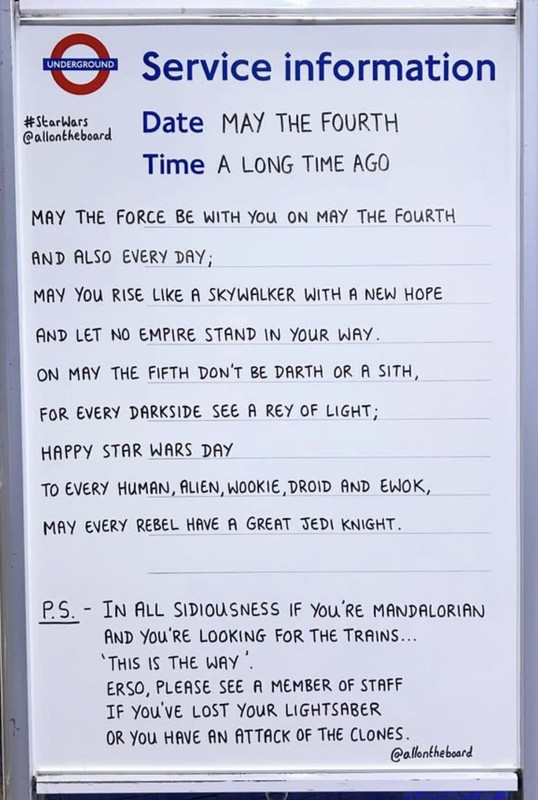 UNDERGROUND
Service information
#StarWars
@allontheboard
Date MAY THE FOURTH
Time A LONG TIME AGO
MAY THE FORCE BE WITH YOU ON MAY THE FOURTH
AND ALSO EVERY DAY;
MAY YOU RISE LIKE A SKYWALKER WITH A NEW HOPE
AND LET NO EMPIRE STAND IN YOUR WAY.
ON MAY THE FIFTH DON'T BE DARTH OR A SITH,
FOR EVERY DARKSIDE SEE A REY OF LIGHT;
HAPPY STAR WARS DAY
TO EVERY HUMAN, ALIEN, WOOKIE, DROID AND EWOK,
MAY EVERY REBEL HAVE A GREAT JEDI KNIGHT.
P.S. - IN ALL SIDIOUSNESS IF YOU'RE MANDALORIAN
AND YOU'RE LOOKING FOR THE TRAINS...
'THIS IS THE WAY'.
ERSO, PLEASE SEE A MEMBER OF STAFF
IF YOU'VE LOST YOUR LIGHTSABER
OR YOU HAVE AN ATTACK OF THE CLONES.
@allontheboard